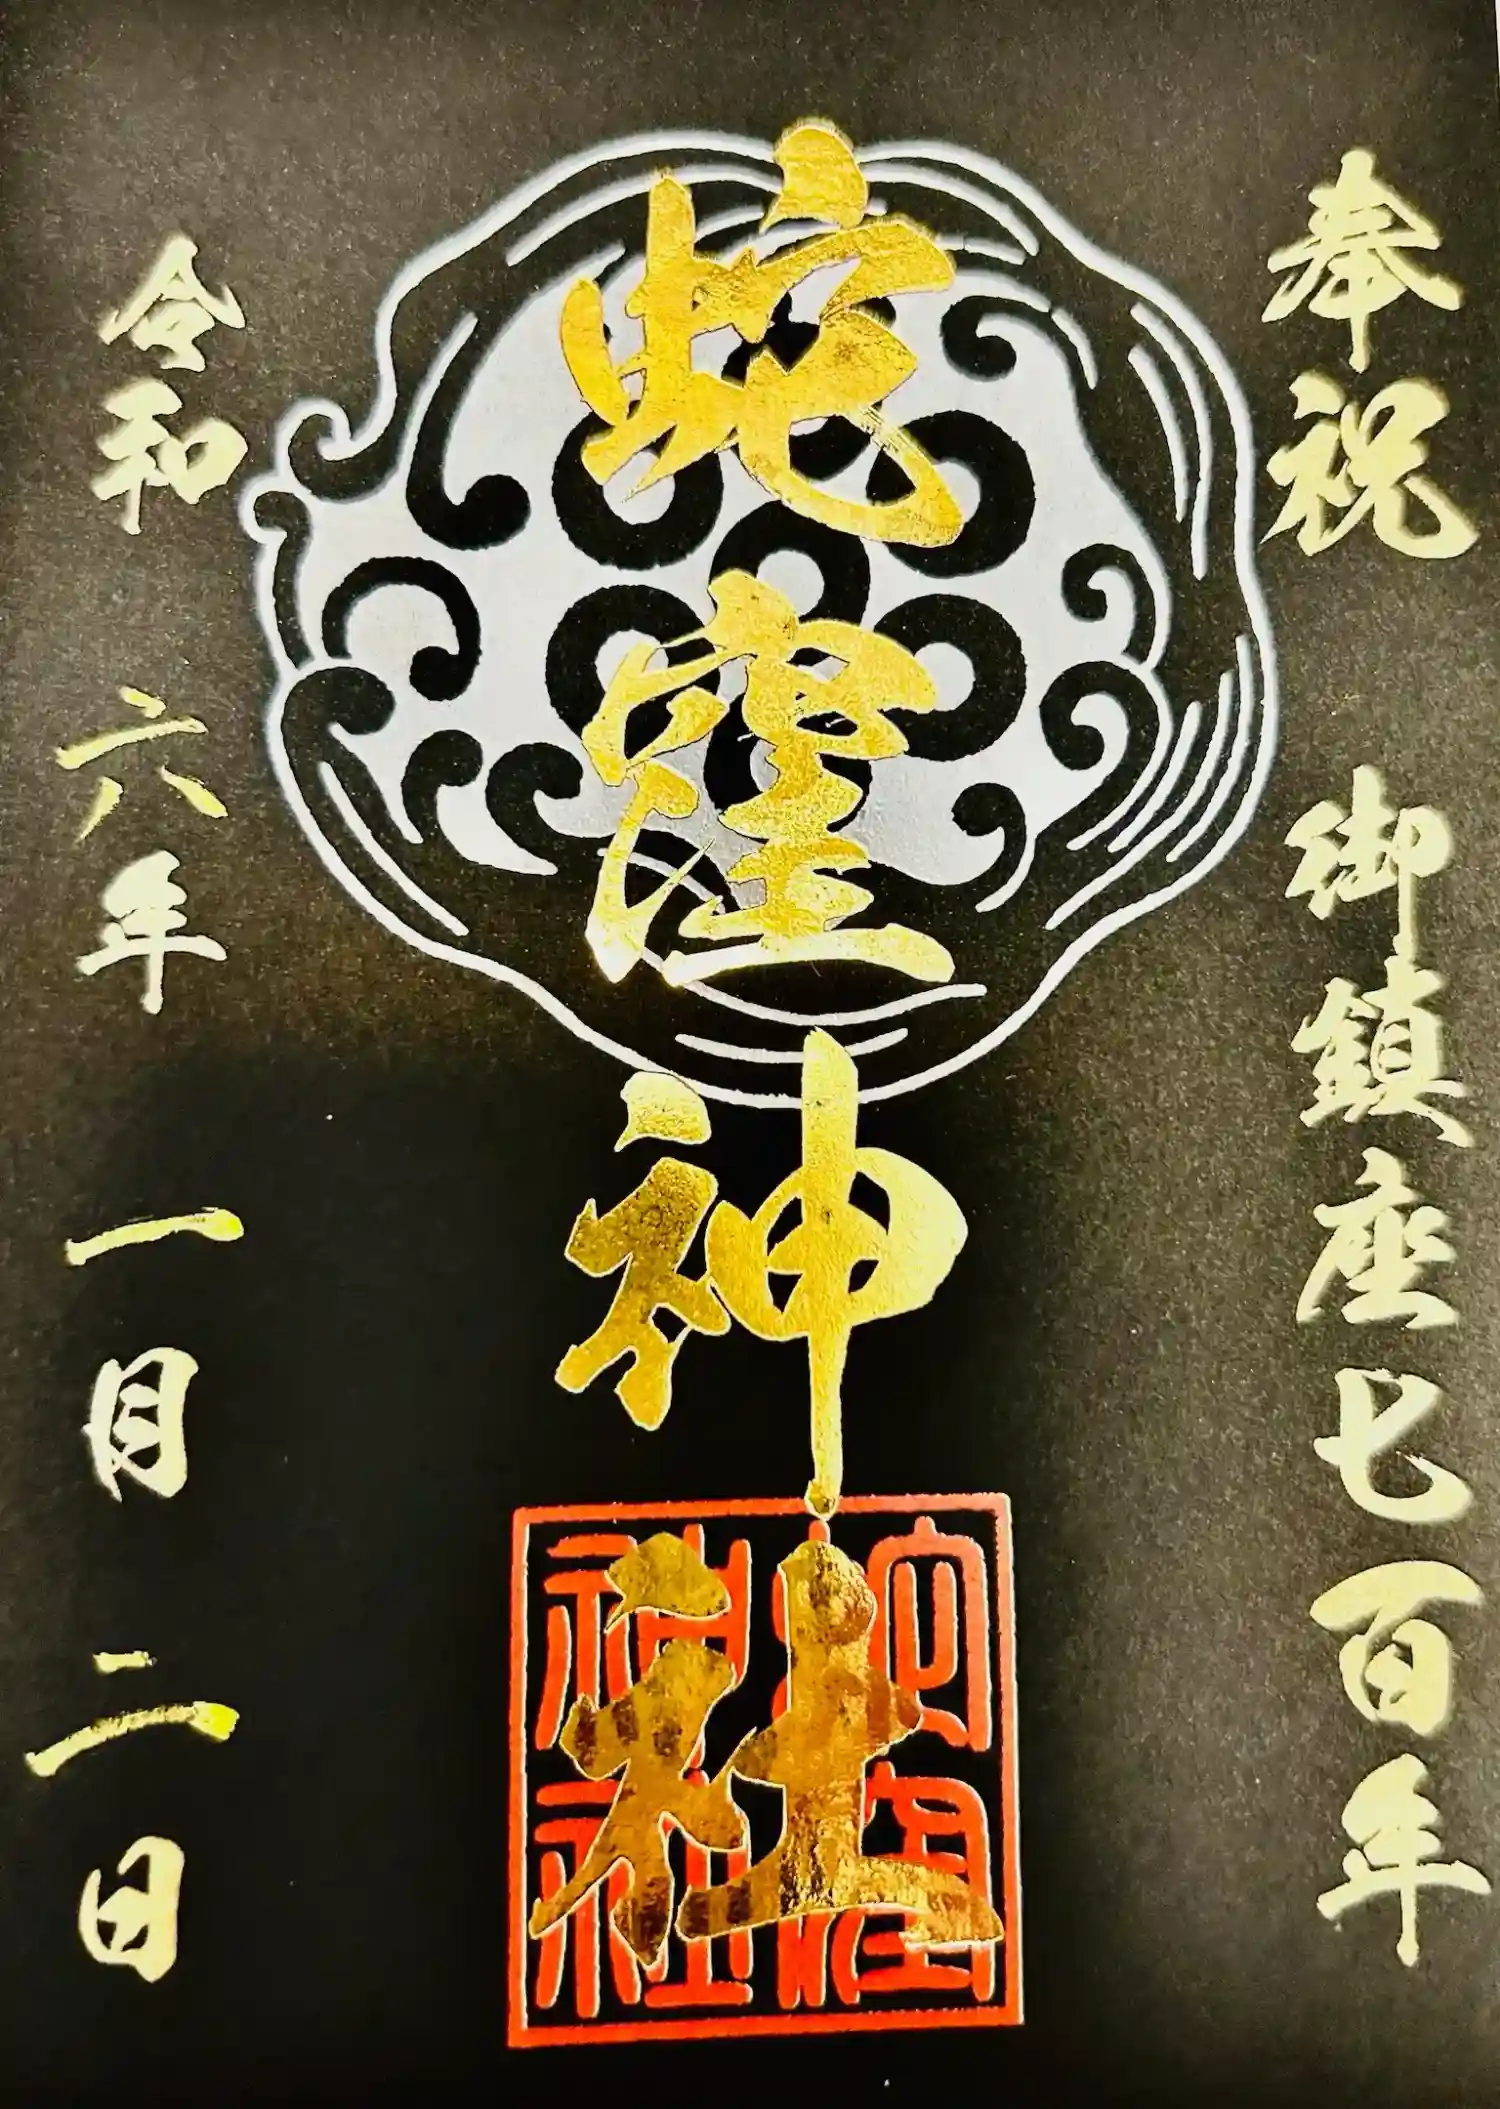 奉祝 御鎮座七百年
蛇窪神社
蛇窪
神社
令和六年一月二日